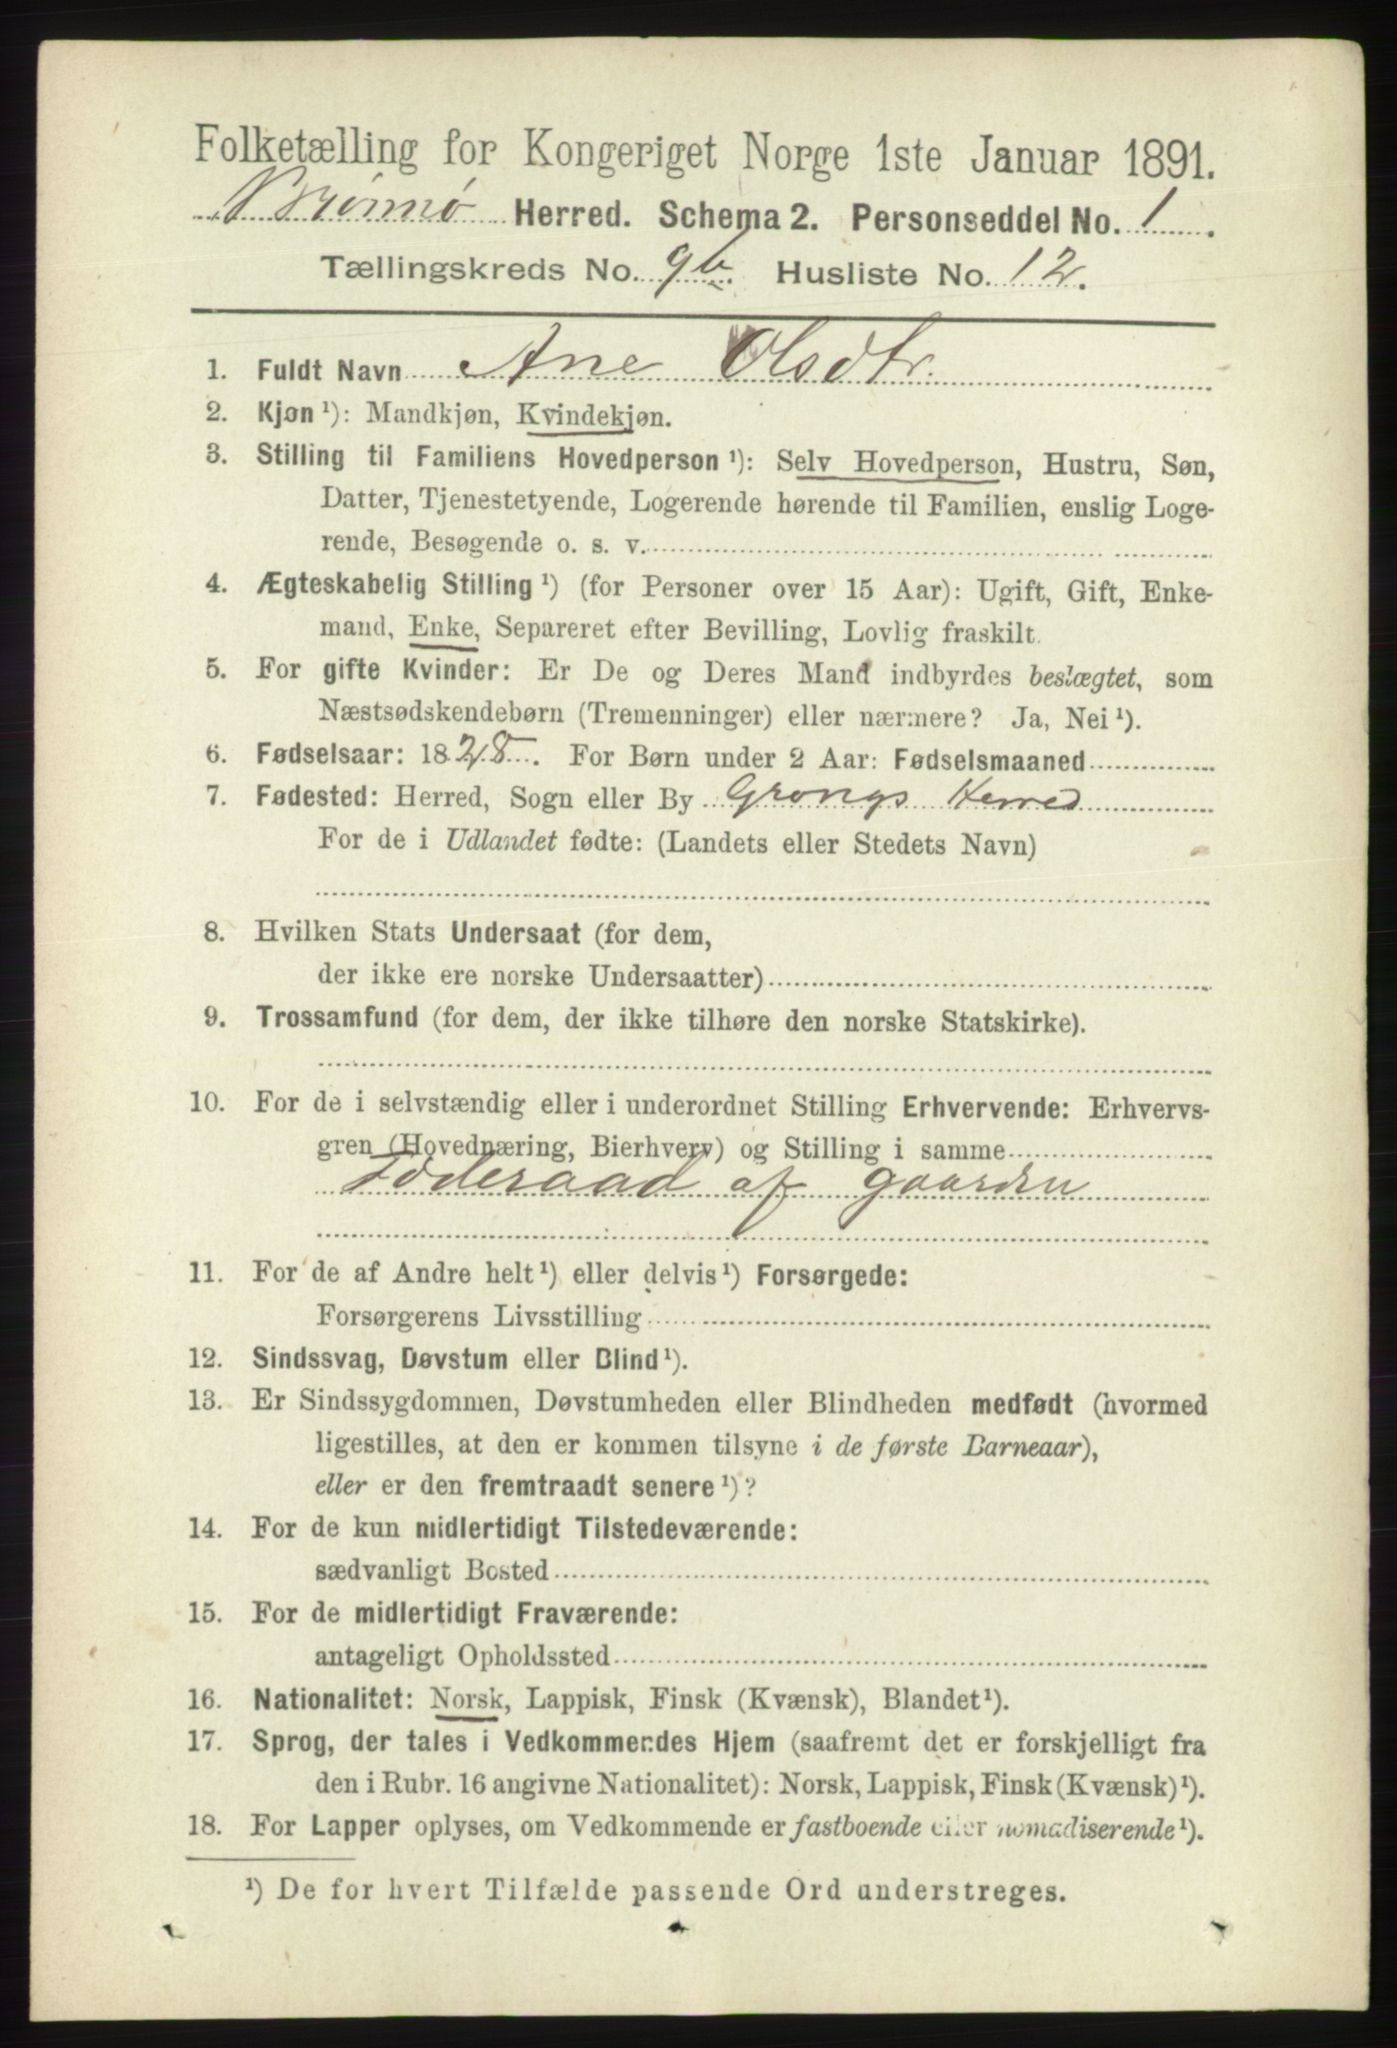 Folketælling for Kongeriget Norge 1ste Januar 1891.
Brønnø Herred. Schema 2. Personseddel No. 1.
Tællingskreds No. 9b. Husliste No. 12.
1. Fuldt Navn Ane Olsdtr.
2. Kjøn¹): Mandkjøn, Kvindekjøn.
3. Stilling til Familiens Hovedperson¹): Selv Hovedperson, Hustru, Søn,
Datter, Tjenestetyende, Logerende hørende til Familien, enslig Loge-
rende, Besøgende o. s. v.
4. Ægteskabelig Stilling¹) (for Personer over 15 Aar): Ugift, Gift, Enke-
mand, Enke, Separeret efter Bevilling, Lovlig fraskilt.
5. For gifte Kvinder: Er De og Deres Mand indbyrdes beslægtet, som
Næstsødskendebørn (Tremenninger) eller nærmere? Ja, Nei¹).
6. Fødselsaar: 1828. For Børn under 2 Aar: Fødselsmaaned
7. Fødested: Herred, Sogn eller By Grongs Herred
For de i Udlandet fødte: (Landets eller Stedets Navn)
8. Hvilken Stats Undersaat (for dem,
der ikke ere norske Undersaatter)
9. Trossamfund (for dem, der ikke tilhøre den norske Statskirke).
10. For de i selvstændig eller i underordnet Stilling Erhvervende: Erhvervs-
gren (Hovednæring, Bierhverv) og Stilling i samme
Føderaad af gaarden
11. For de af Andre helt¹) eller delvis¹) Forsørgede:
Forsørgerens Livsstilling
12. Sindssvag, Døvstum eller Blind¹).
13. Er Sindssygdommen, Døvstumheden eller Blindheden medfødt (hvormed
ligestilles, at den er kommen tilsyne i de første Barneaar),
eller er den fremtraadt senere¹)?
14. For de kun midlertidigt Tilstedeværende:
sædvanligt Bosted
15. For de midlertidigt Fraværende:
antageligt Opholdssted
16. Nationalitet: Norsk, Lappisk, Finsk (Kvænsk), Blandet¹).
17. Sprog, der tales i Vedkommendes Hjem (saafremt det er forskjelligt fra
den i Rubr. 16 angivne Nationalitet): Norsk, Lappisk, Finsk (Kvænsk)¹).
18. For Lapper oplyses, om Vedkommende er fastboende eller nomadiserende¹).
¹) De for hvert Tilfælde passende Ord understreges.